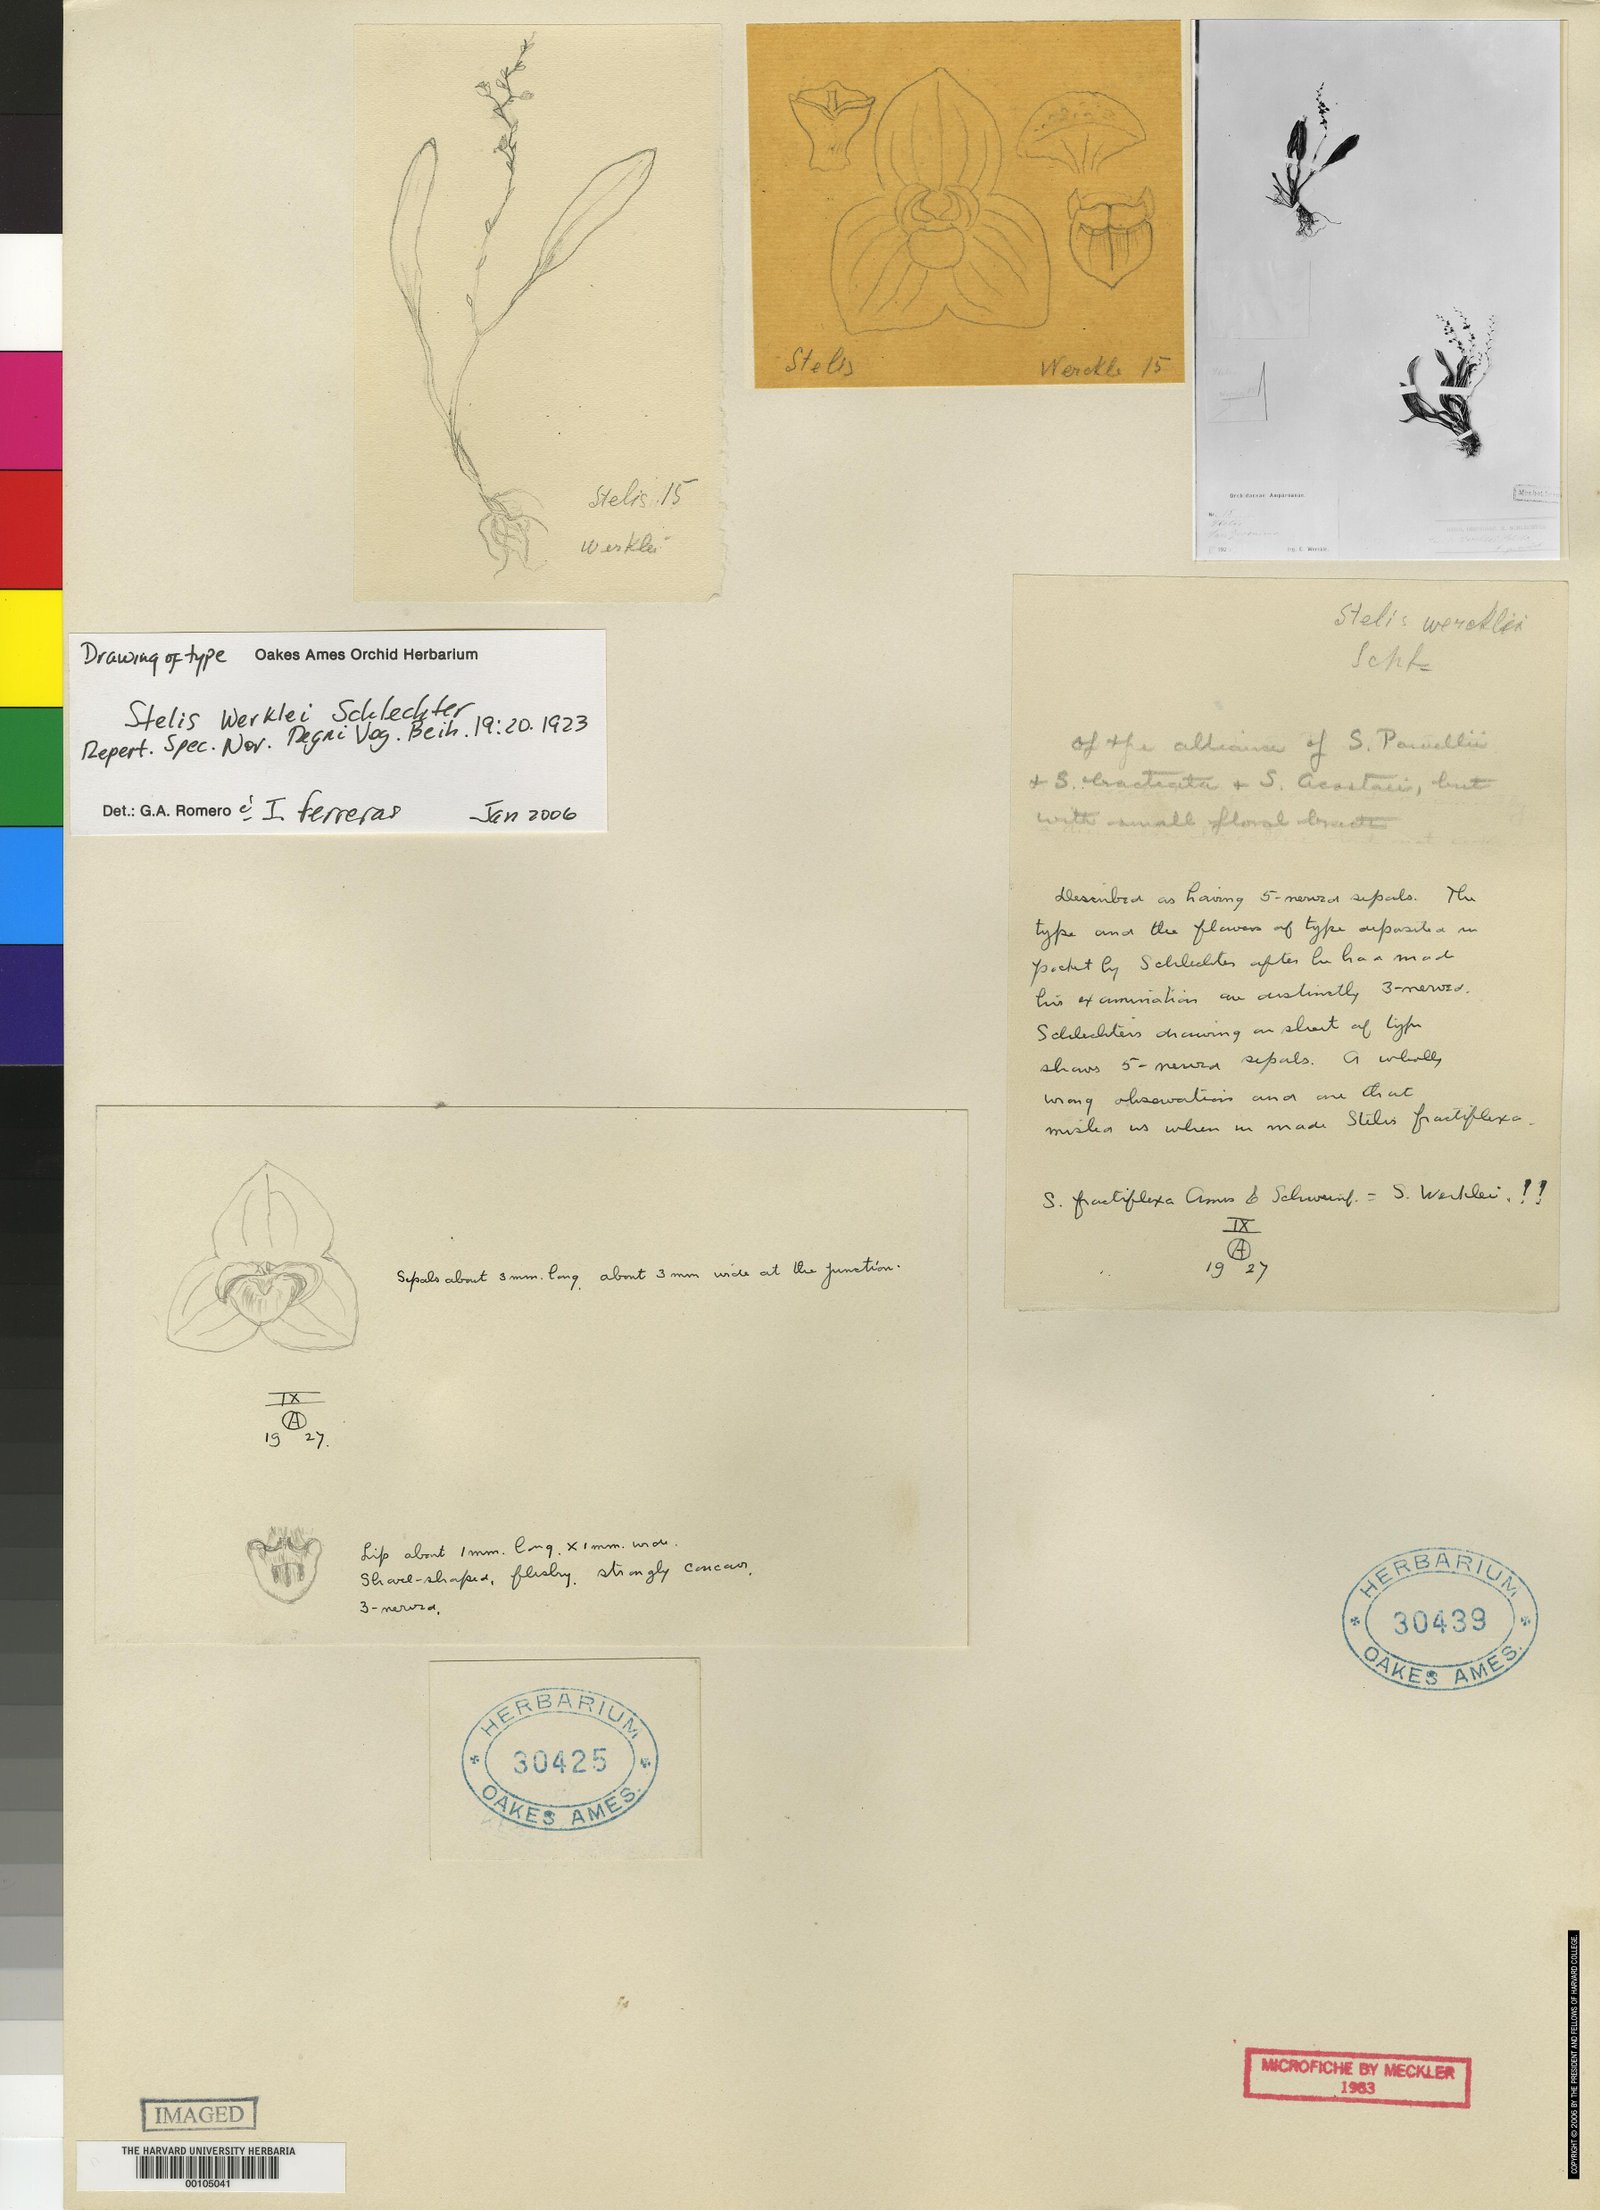 Stelis 15
Werklei
Stelis
Werckle 15
Orchidaceae Amparoanae.
Nr. 15
leg. C. Werckle.
Drawing of type Oakes Ames Orchid Herbarium
Stelis Werklei Schlechter
Repert. Spec. Nov. Regni Veg. Beih. 19:20. 1923
Det.: G.A. Romero & I ferreras Jan 2006
Stelis wercklei
Schltr
of the alliance of S. Powellii
+ S. bracteata + S. Acostaei, but
with small floral bracts
Described as having 5-nerved sepals. The
type and the flowers of type deposited in
pocket by Schlechter after he had made
his examination are distinctly 3-nerved.
Schlechter's drawing on sheet of type
shows 5-nerved sepals. A wholly
wrong observation and one that
misled us when we made Stelis fractiflexa.
S. fractiflexa Ames & Schweinf. = S. Werklei.!!
IX
A
19 27
Sepals about 3mm. long, about 3 mm wide at the junction.
IX
A
19 27.
Lip about 1mm. long. x 1mm. wide.
Shovel-shaped, fleshy, strongly concave,
3-nerved.
HERBARIUM
30439
OAKES AMES.
HERBARIUM
30425
OAKES AMES.
MICROFICHE BY MECKLER
1983
IMAGED
THE HARVARD UNIVERSITY HERBARIA
00105041
COPYRIGHT © 2006 BY THE PRESIDENT AND FELLOWS OF HARVARD COLLEGE.